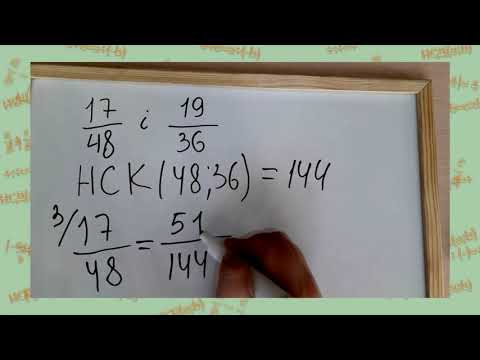 17/48 і 19/36
НСК(48;36) = 144
3/ 17/48 = 51/144